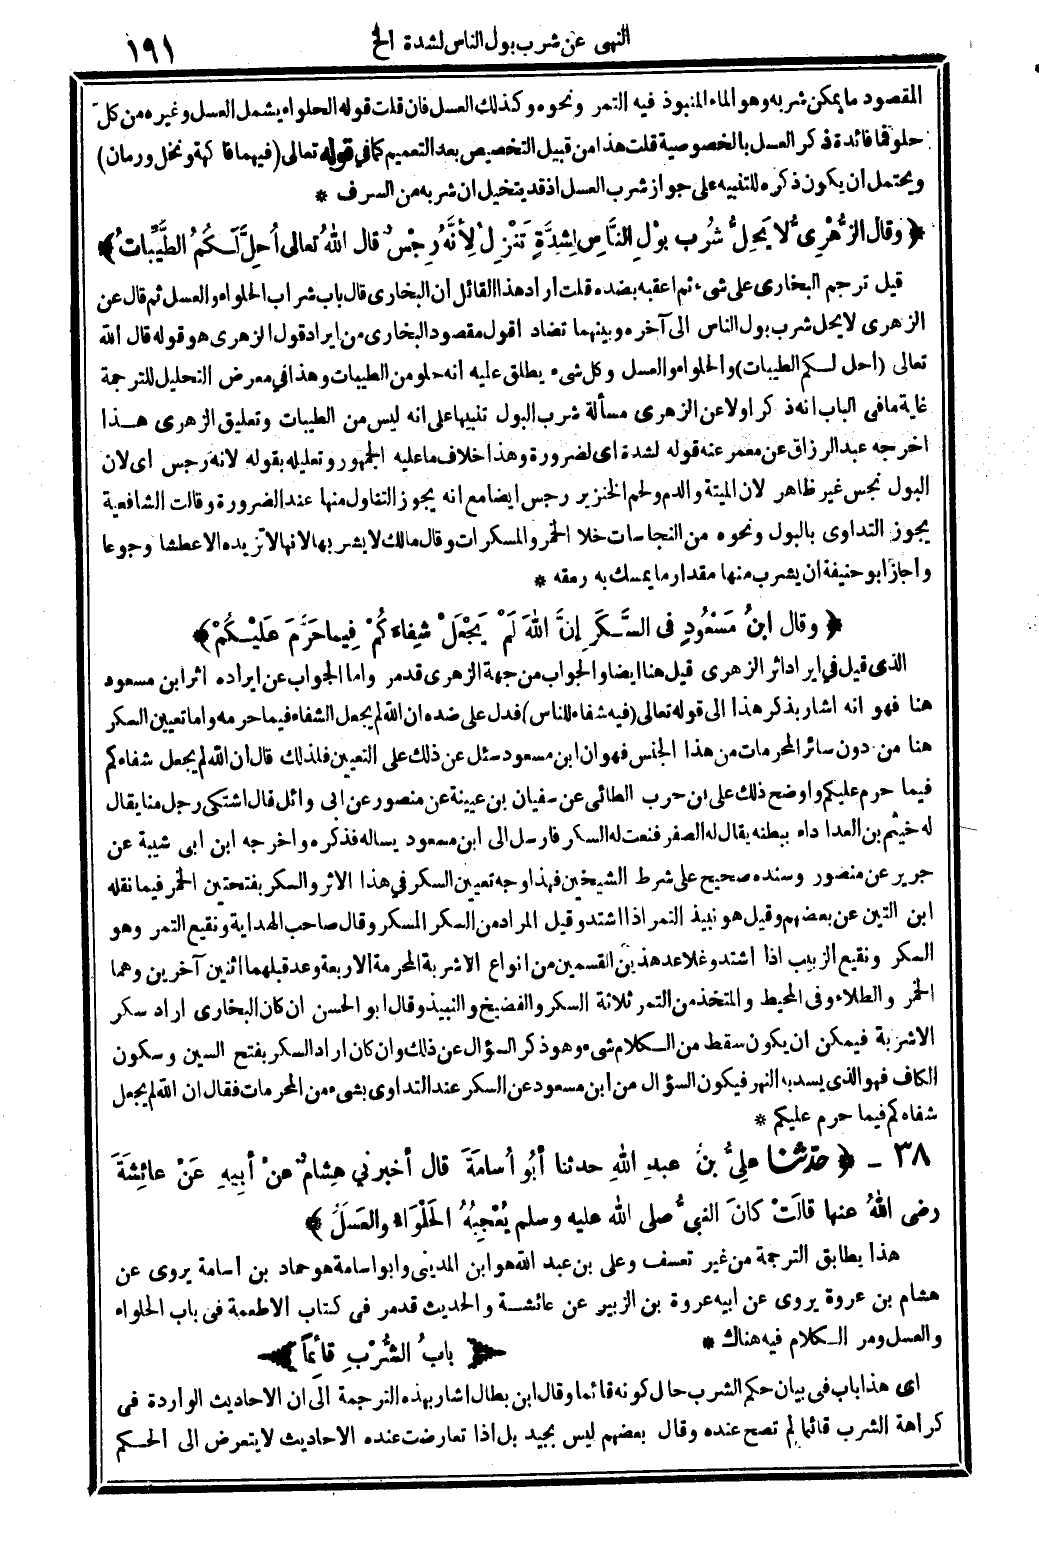 النهى عن شرب بول الناس لشدة الخ
١٩١
المقصود ما يمكن شربه وهو الماء المنبوذ فيه التمر ونحوه وكذلك العسل فان قلت قوله الحلواء يشمل العسل وغيره من كل
حلو فما فائدة ذكر العسل بالخصوصية قلت هذا من قبيل التخصيص بعد التعميم كما في قوله تعالى (فيهما فاكهة ونخل ورمان)
ويحتمل ان يكون ذكره للتنبيه على جواز شرب العسل اذ قد يتخيل ان شربه من السرف *
﴿ وقال الزُّهْرِىُّ لا يَحِلُّ شُرْب بوْلِ النَّاسِ لِشِدَّةٍ تَنْزِلُ لِأنَّهُ رِجْسٌ قال اللهُ تعالى أُحِلَّ لَـكُمُ الطَّيِّبَاتُ ﴾
قيل ترجم البخارى على شىء ثم اعقبه بضده قلت اراد هذا القائل ان البخارى قال باب شراب الحلواء والعسل ثم قال عن
الزهرى لا يحل شرب بول الناس الى آخره وبينهما تضاد اقول مقصود البخارى من ايراد قول الزهرى هو قوله قال الله
تعالى (أحل لـكم الطيبات) والحلواء والعسل وكل شىء يطلق عليه انه حلو من الطيبات وهذا في معرض التحليل للترجمة
غاية ما فى الباب انه ذكر اولا عن الزهرى مسألة شرب البول تنبيها على انه ليس من الطيبات وتعليق الزهرى هـذا
اخرجه عبد الرزاق عن معمر عنه قوله لشدة اى لضرورة وهذا خلاف ما عليه الجمهور وتعليله بقوله لانه رجس اى لان
البول نجس غير ظاهر لان الميتة والدم ولحم الخنزير رجس ايضا مع انه يجوز التناول منها عند الضرورة وقالت الشافعية
يجوز التداوى بالبول ونحوه من النجاسات خلا الخمر والمسكرات وقال مالك لا يشربها لانها لا تزيده الا عطشا وجوعا
واجاز ابو حنيفة ان يشرب منها مقدار ما يمسك به رمقه *
﴿ وقال ابنُ مَسْعُودٍ فى السَّـكَرِ إنَّ اللهَ لَمْ يَجْعَلْ شِفاءَكُمْ فِيما حَرَّمَ عَلَيْـكُمْ ﴾
الذى قيل فى ايراد اثر الزهرى قيل هنا ايضا والجواب من جهة الزهرى قد مر واما الجواب عن ايراده اثر ابن مسعود
هنا فهو انه اشار بذكر هذا الى قوله تعالى (فيه شفاء للناس) فدل على ضده ان الله لم يجعل الشفاء فيما حرمه واما تعيين السكر
هنا من دون سائر المحرمات من هذا الجنس فهو ان ابن مسعود سئل عن ذلك على التعيين فلذلك قال ان الله لم يجعل شفاءكم
فيما حرم عليكم واوضح ذلك على بن حرب الطائى عن سفيان بن عيينة عن منصور عن ابى وائل قال اشتكى رجل منا يقال
له خيثم بن العدا داء ببطنه يقال له الصفر فنعت له السكر فارسل الى ابن مسعود يساله فذكره واخرجه ابن ابى شيبة عن
جرير عن منصور وسنده صحيح على شرط الشيخين فهذا وجه تعيين السكر في هذا الاثر والسكر بفتحتين الخمر فيما نقله
ابن التين عن بعضهم وقيل هو نبيذ التمر اذا اشتد وقيل المراد من السكر المسكر وقال صاحب الهداية ونقيع التمر وهو
السكر ونقيع الزبيب اذا اشتد وغلا عد هذين القسمين من انواع الاشربة المحرمة الاربعة وعد قبلهما اثنين آخرين وهما
الخمر والطلاء وفى المحيط والمتخذ من التمر ثلاثة السكر والفضيخ والنبيذ وقال ابو الحسن ان كان البخارى اراد سكر
الاشربة فيمكن ان يكون سقط من الـكلام شىء وهو ذكر السؤال عن ذلك وان كان اراد السكر بفتح السين وسكون
الكاف فهو الذى يسد به النهر فيكون السؤال من ابن مسعود عن السكر عند التداوى بشىء من المحرمات فقال ان الله لم يجعل
شفاءكم فيما حرم عليكم *
٣٨ ـ ﴿ حدّثنا علِىُّ بنُ عبدِ اللهِ حدثنا أبُو أُسامَةَ قال أخبرني هِشامٌ عنْ أبِيهِ عَنْ عائِشَةَ
رضى اللهُ عنها قالَتْ كانَ النبىُّ صلى الله عليه وسلم يُعْجِبُهُ الحَلْوَاءُ والعَسَلُ ﴾
هذا يطابق الترجمة من غير تعسف وعلى بن عبد الله هو ابن المدينى وابو اسامة هو حماد بن أسامة يروى عن
هشام بن عروة يروى عن ابيه عروة بن الزبير عن عائشـة والحديث قد مر فى كتاب الاطعمة فى باب الحلواء
والعسل ومر الـكلام فيه هناك *
﴿ بابُ الشُّرْبِ قائِماً ﴾
اى هذا باب فى بيان حكم الشرب حال كونه قائما وقال ابن بطال اشار بهذه الترجمة الى ان الاحاديث الواردة فى
كراهة الشرب قائما لم تصح عنده وقال بعضهم ليس بجيد بل اذا تعارضت عنده الاحاديث لا يتعرض الى الحـكم